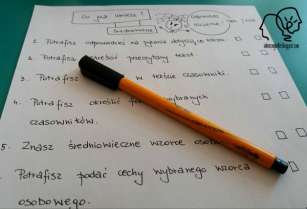 Co już umiesz?
Średniowiecze
Potrafisz odpowiedzieć na pytania dotyczące tekstu.
2. Potrafisz streścić przeczytany tekst
3. Potrafisz w tekście czasowniki.
4. Potrafisz określić wybranych
czasowników.
5. Znasz średniowieczne wzorce osobowe.
Potrafisz podać cechy wybranego wzorca
osobowego.